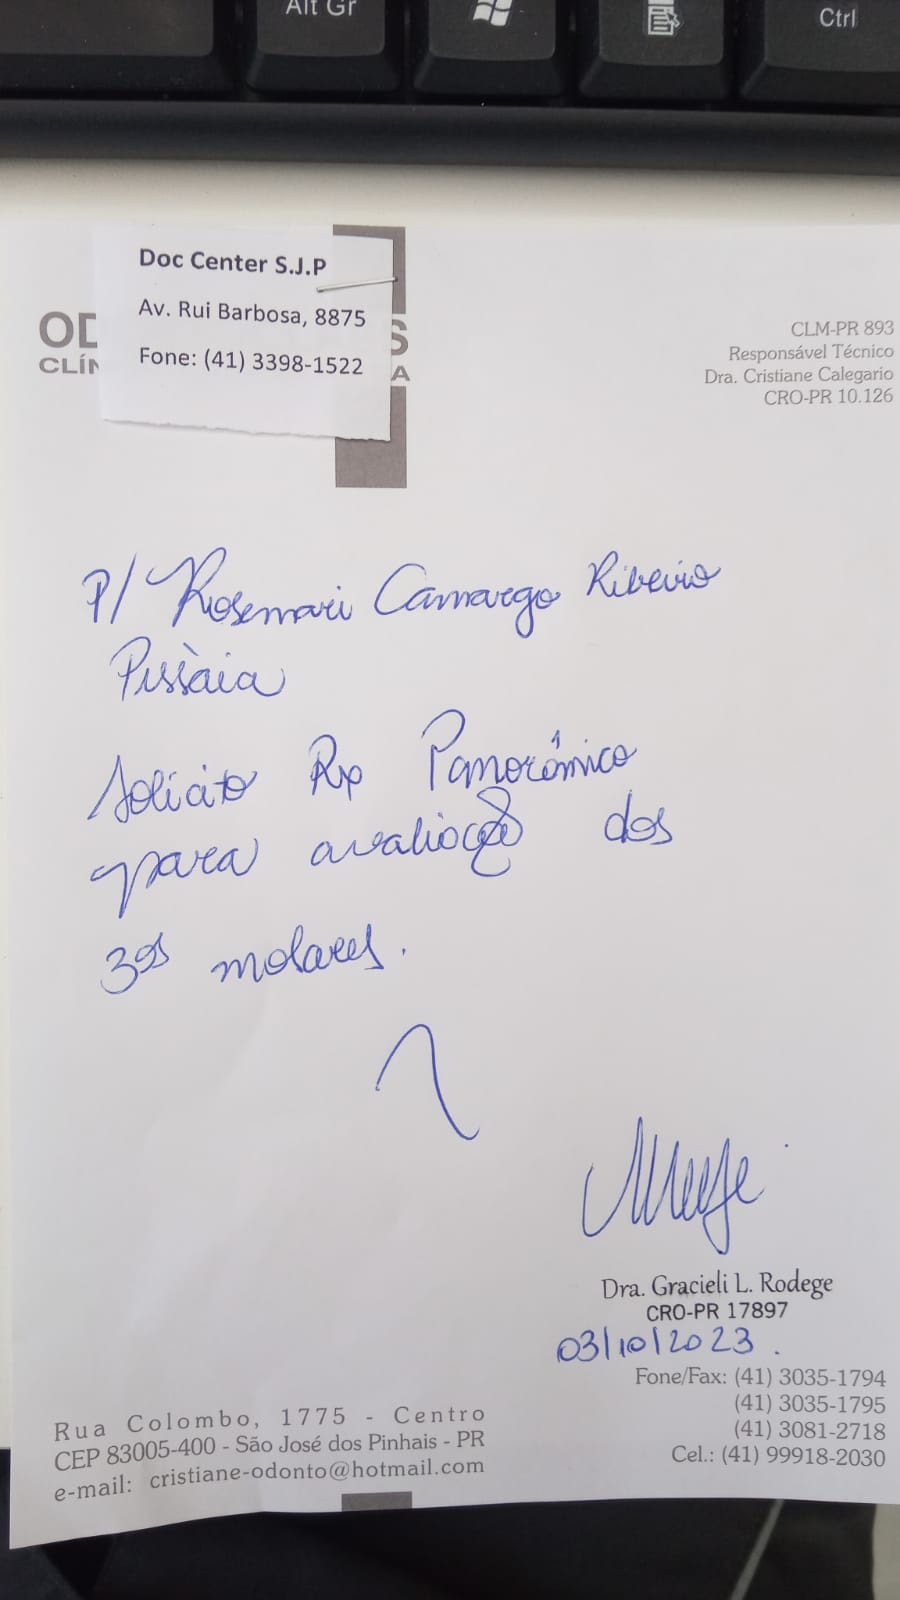 Alt Gr
Ctrl
Doc Center S.J.P
Av. Rui Barbosa, 8875
Fone: (41) 3398-1522
OD S
CLÍN A
CLM-PR 893
Responsável Técnico
Dra. Cristiane Calegario
CRO-PR 10.126
P/ Rosemari Camargo Ribeiro
Pissàia
Solicito Rx Panorâmico
para avaliação dos
3os molares.
Dra. Gracieli L. Rodege
CRO-PR 17897
03/10/2023.
Fone/Fax: (41) 3035-1794
(41) 3035-1795
(41) 3081-2718
Cel.: (41) 99918-2030
Rua Colombo, 1775 - Centro
CEP 83005-400 - São José dos Pinhais - PR
e-mail: cristiane-odonto@hotmail.com